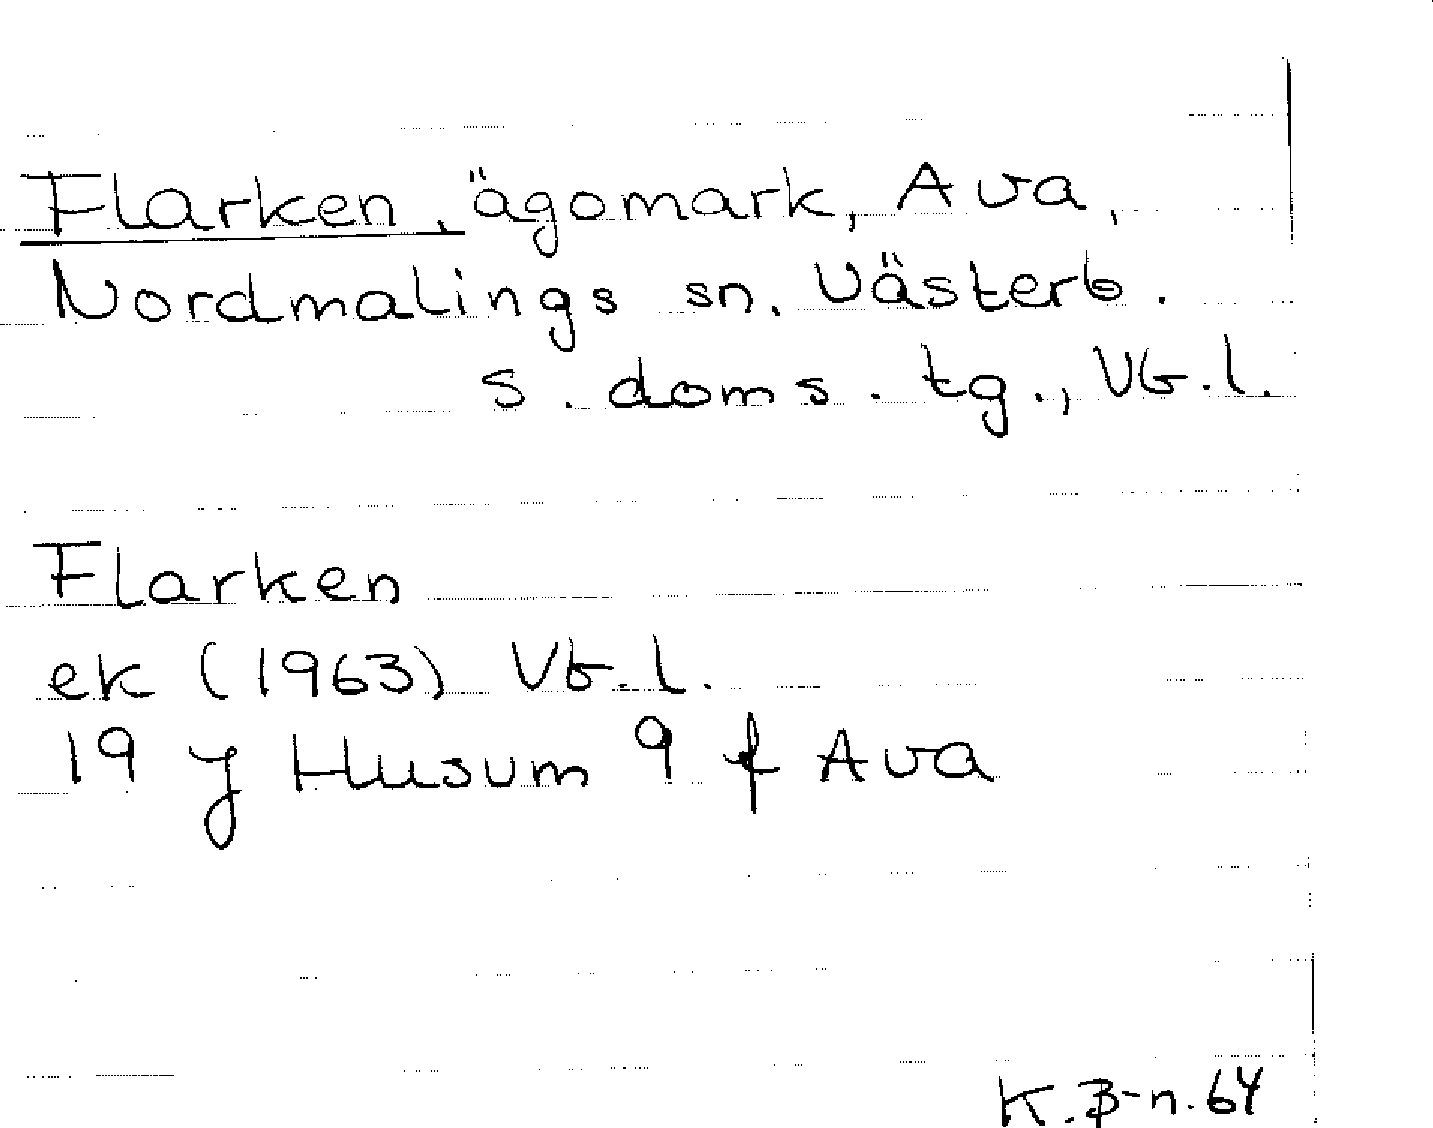 Flarken, ägomark, Ava,
Nordmalings sn. Västerb.
s. doms. tg., Vb. l.
Flarken
ek (1963) Vb. l.
19 J Husum 9 f Ava
K. B-n. 64